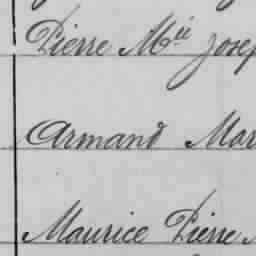 Pierre Mie Josep
Armand Mar
Maurice Pierre